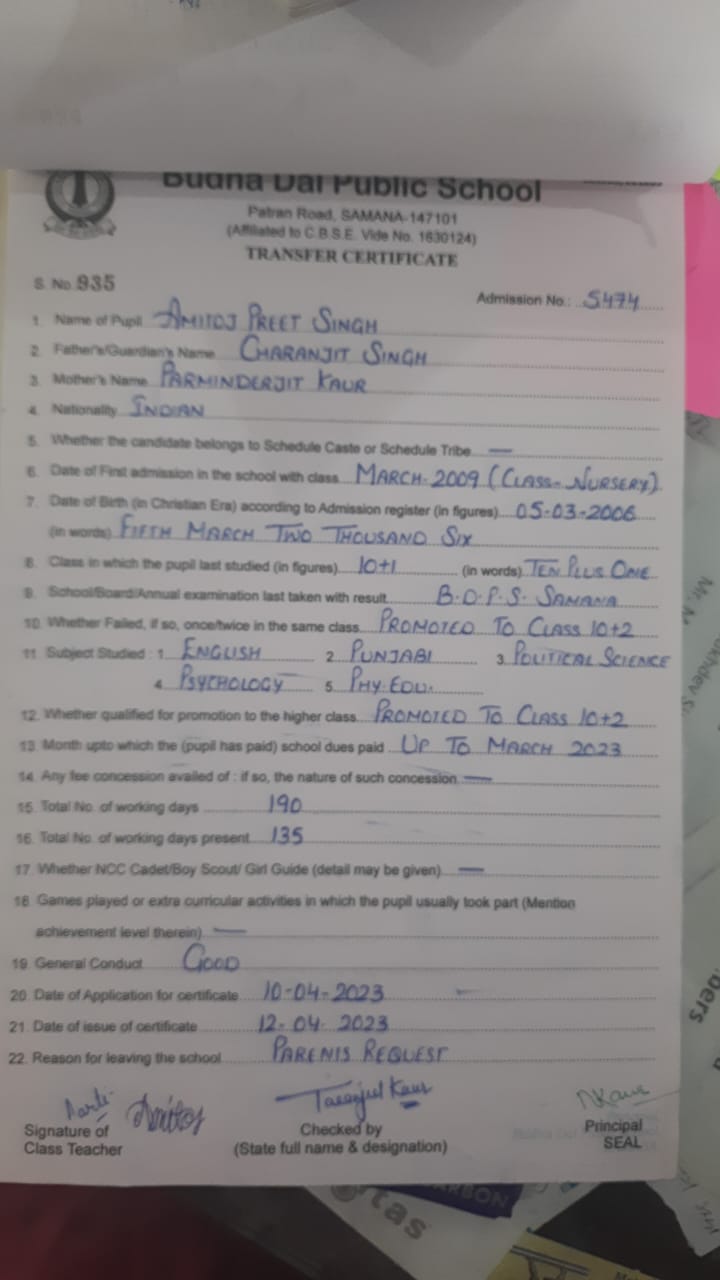 Budha Dal Public School
Patran Road, SAMANA-147101
(Affiliated to C.B.S.E. Vide No. 1630124)
TRANSFER CERTIFICATE
S. No. 935
Admission No.: 5474
1. Name of Pupil AMITOJ PREET SINGH
2. Father's/Guardian's Name CHARANJIT SINGH
3. Mother's Name PARMINDERJIT KAUR
4. Nationality INDIAN
5. Whether the candidate belongs to Schedule Caste or Schedule Tribe —
6. Date of First admission in the school with class MARCH-2009 (CLASS-NURSERY)
7. Date of Birth (in Christian Era) according to Admission register (in figures) 05-03-2006
(in words) FIFTH MARCH TWO THOUSAND SIX
8. Class in which the pupil last studied (in figures) 10+1 (in words) TEN PLUS ONE
9. School/Board/Annual examination last taken with result B.D.P.S. SAMANA
10. Whether Failed, if so, once/twice in the same class PROMOTED TO CLASS 10+2
11. Subject Studied : 1. ENGLISH 2. PUNJABI 3. POLITICAL SCIENCE
4. PSYCHOLOGY 5. PHY. EDU.
12. Whether qualified for promotion to the higher class PROMOTED TO CLASS 10+2
13. Month upto which the (pupil has paid) school dues paid UP TO MARCH 2023
14. Any fee concession availed of : if so, the nature of such concession —
15. Total No. of working days 190
16. Total No. of working days present 135
17. Whether NCC Cadet/Boy Scout/ Girl Guide (detail may be given) —
18. Games played or extra curricular activities in which the pupil usually took part (Mention
achievement level therein) —
19. General Conduct GOOD
20. Date of Application for certificate 10-04-2023
21. Date of issue of certificate 12-04-2023
22. Reason for leaving the school PARENTS REQUEST
Amitoj
Signature of
Class Teacher
Kaur
Checked by
(State full name & designation)
NKaur
Principal
SEAL
tas
bers